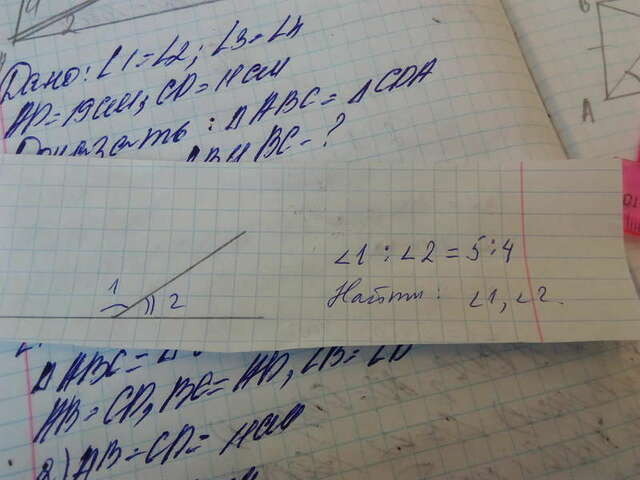 4
2
B
A
Дано: ∠1=∠2; ∠3=∠4
AD=19см, CD=11см
Доказать: △ABC=△CDA
BC-?
1
2
∠1:∠2=5:4
Найти: ∠1, ∠2.
△ABC=△
AB=CD, BC=AD, ∠B=∠D
2) AB=CD=11см